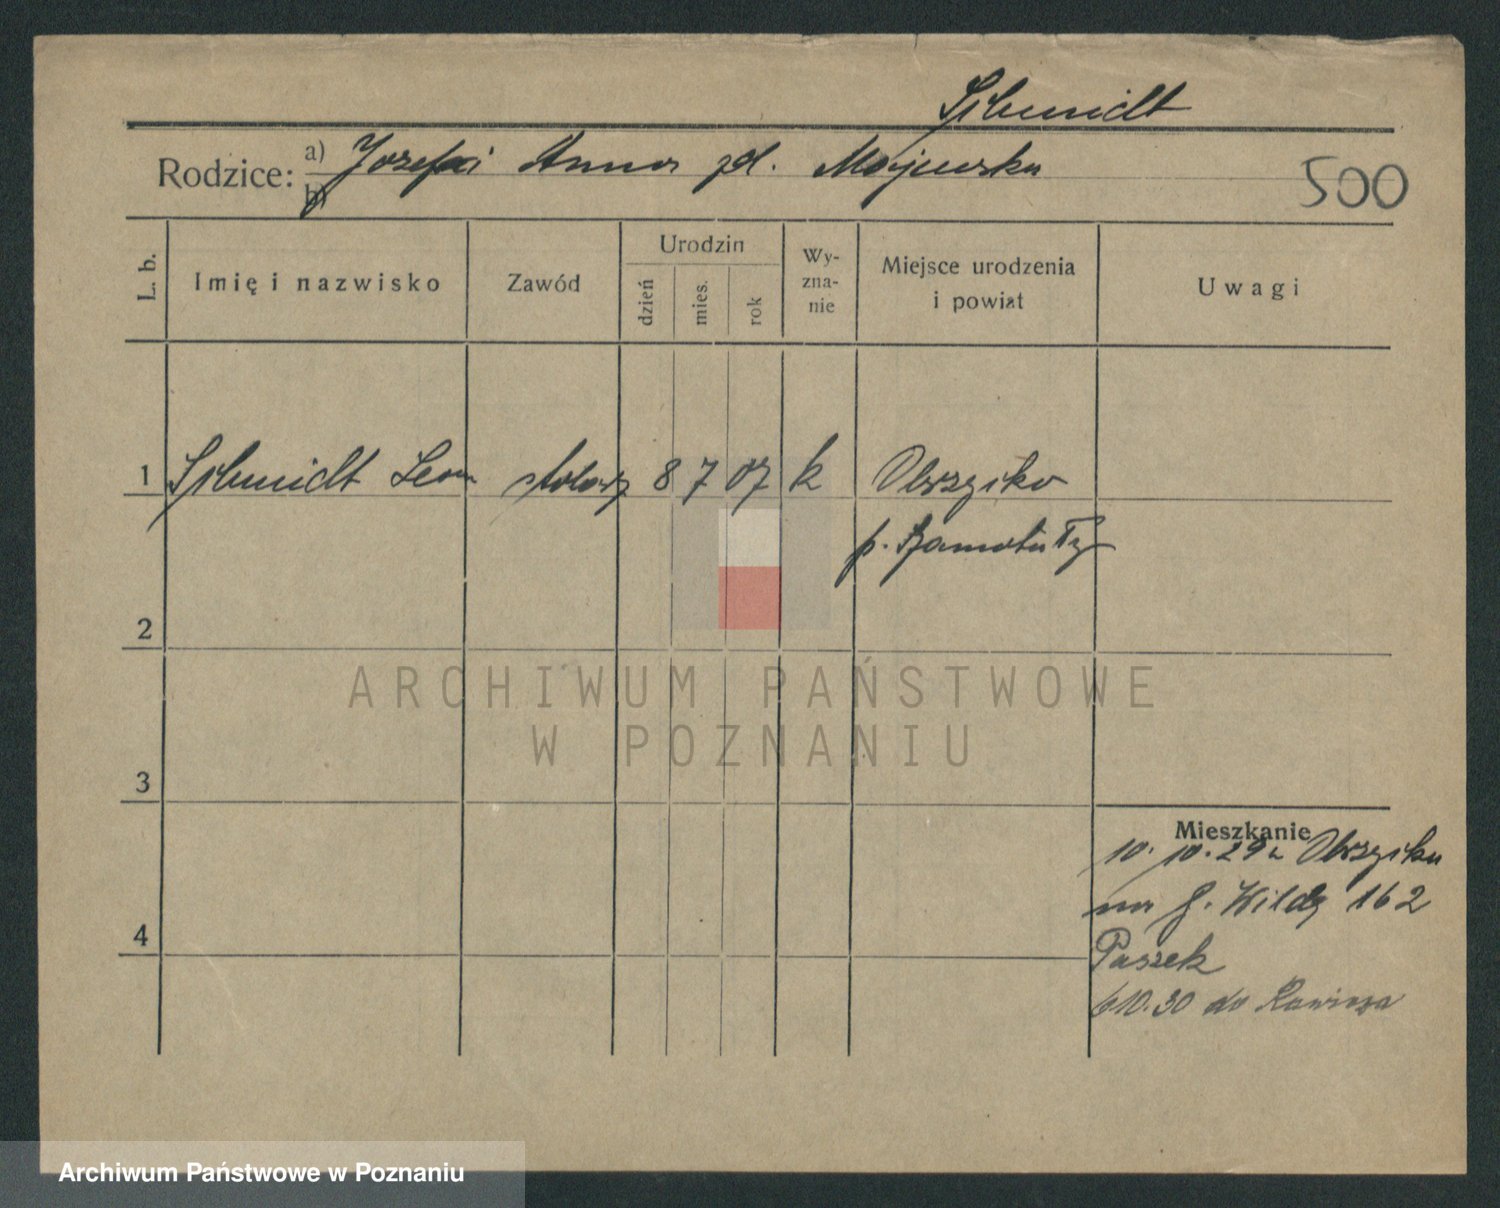 Schmidt
Rodzice: a) Józef i Anna zd. Majewska
b)
500
L. b.
Imię i nazwisko
Zawód
Urodzin
dzień
mies.
rok
Wy-
zna-
nie
Miejsce urodzenia
i powiat
Uwagi
1 Schmidt Leon stolarz 8 7 07 k Obrzycko
p. Szamotuły
2
ARCHIWUM PAŃSTWOWE
W POZNANIU
3
Mieszkanie
10. 10. 29 z Obrzycka
na G. Wildę 162
4
Paszek
6 10. 30 do Rawicza
Archiwum Państwowe w Poznaniu